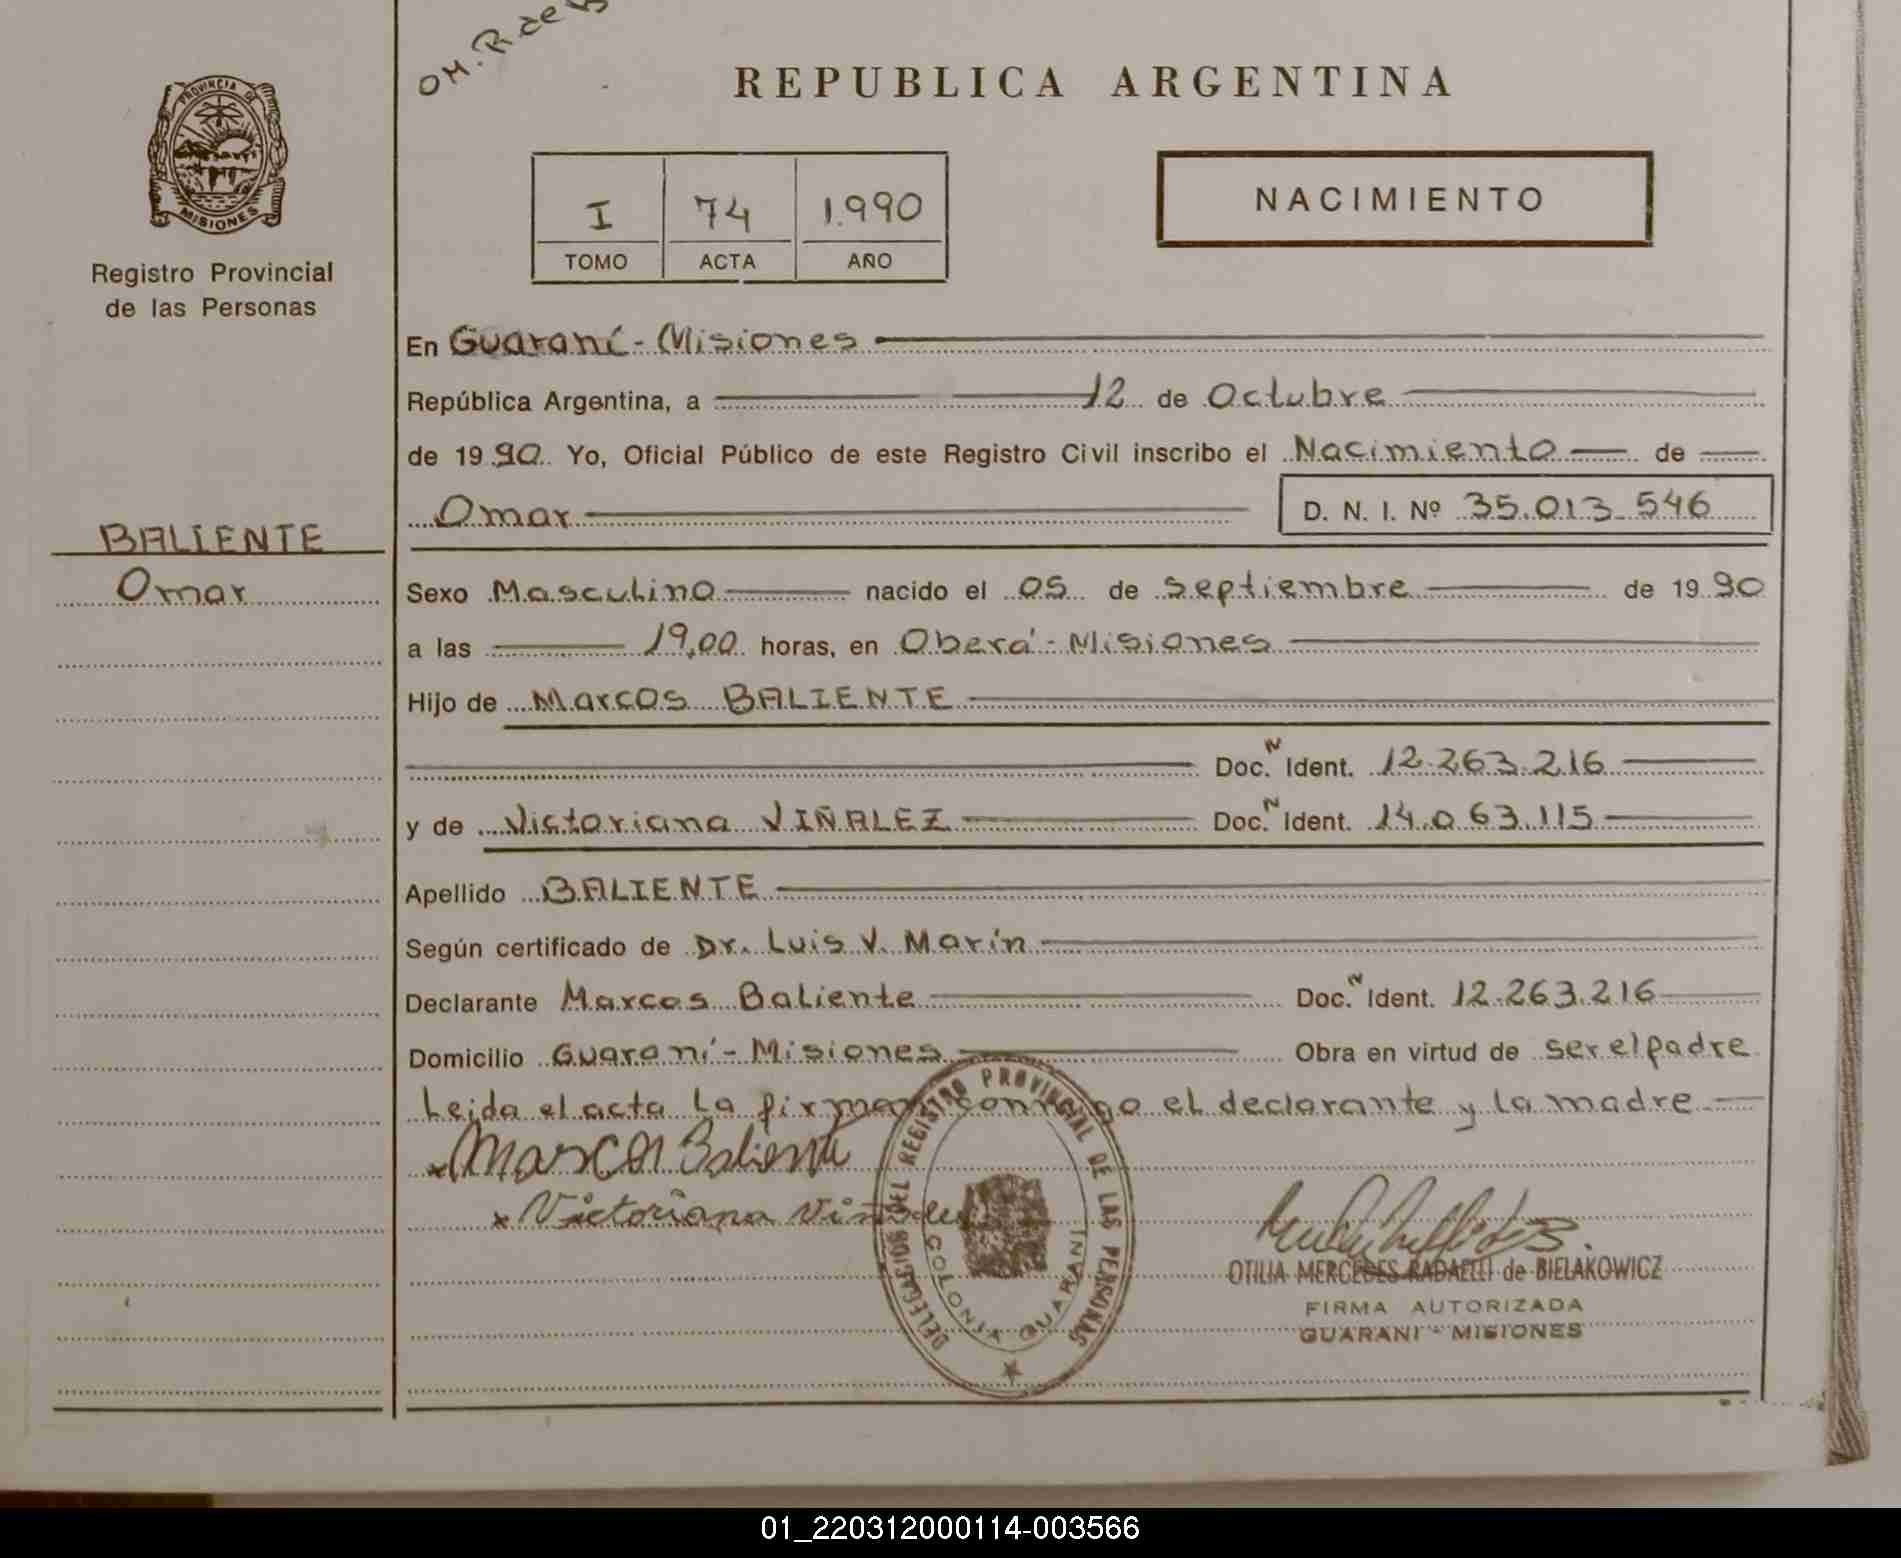 OM. R de B
PROVINCIA DE
MISIONES
Registro Provincial
de las Personas
BALIENTE
Omar
REPUBLICA ARGENTINA
I 74 1.990
TOMO ACTA AÑO
NACIMIENTO
En Guaraní - Misiones
República Argentina, a 12 de Octubre
de 1990 Yo, Oficial Público de este Registro Civil inscribo el Nacimiento de
Omar D. N. I. Nº 35.013.546
Sexo Masculino nacido el 05 de Septiembre de 1990
a las 19,00 horas, en Oberá - Misiones
Hijo de Marcos BALIENTE
Doc. N Ident. 12.263.216
y de Victoriana VIÑALEZ Doc. N Ident. 14.063.115
Apellido BALIENTE
Según certificado de Dr. Luis V. Marín
Declarante Marcos Baliente Doc. N Ident. 12.263.216
Domicilio Guaraní - Misiones Obra en virtud de ser el padre
Leida el acta la firman conmigo el declarante y la madre
x Marcos Baliente
x Victoriana
DELEGACION DEL REGISTRO PROVINCIAL DE LAS PERSONAS
COLONIA GUARANI
OTILIA MERCEDES RADAELLI de BIELAKOWICZ
FIRMA AUTORIZADA
GUARANI - MISIONES
01_220312000114-003566